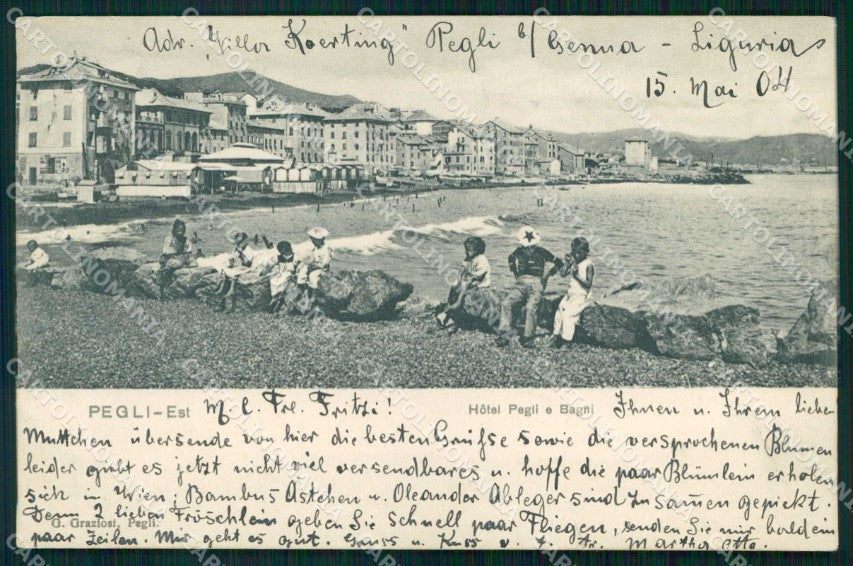 Adr. "Villa Koerting" Pegli b/Genua - Liguria
15. Mai 04
PEGLI-Est M. l. Frl. Fritzi! Hôtel Pegli e Bagni Ihnen u. Ihrem lieben
Muttchen übersende von hier die besten Grüsse sowie die versprochenen Blumen
leider gibt es jetzt nicht viel versendbares u. hoffe die paar Blümlein erholen
sich in Wien; Bambus Ästchen u. Oleander Ableger sind zusamen gepickt.
Denn 2 lieben Fröschlein geben Sie schnell paar Fliegen, senden Sie mir bald ein
G. Graziosi, Pegli.
paar Zeilen. Mir geht es gut. Gruss u. Kuss v. Martha Otto.
CARTOLINOMANIA